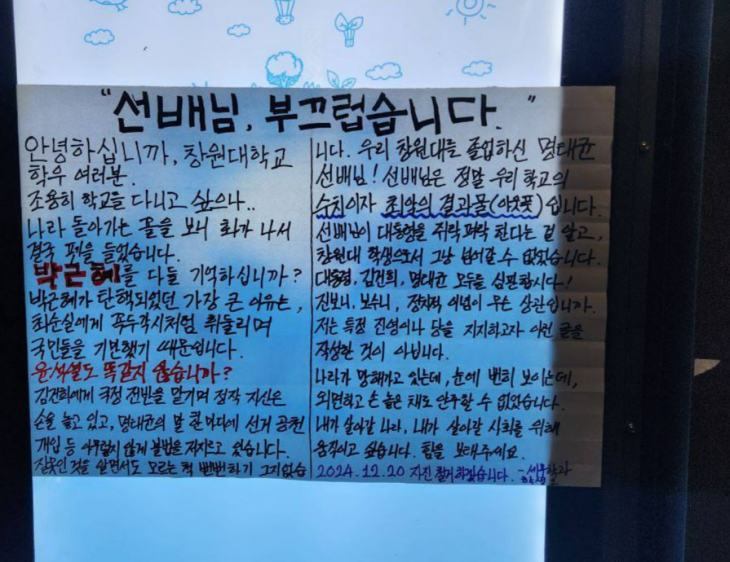 "선배님, 부끄럽습니다."
안녕하십니까, 창원대학교
학우 여러분.
조용히 학교를 다니고 싶으나..
나라 돌아가는 꼴을 보니 화가 나서
결국 펜을 들었습니다.
박근혜를 다들 기억하십니까?
박근혜가 탄핵되었던 가장 큰 이유는,
최순실에게 꼭두각시처럼 휘둘리며
국민들을 기만했기 때문입니다.
윤석열도 똑같지 않습니까?
김건희에게 국정 전반을 맡기며 정작 자신은
손을 놓고 있고, 명태균의 말 한마디에 선거 공천
개입 등 아무렇지 않게 불법을 저지르고 있습니다.
잘못인 것을 알면서도 모르는 척 뻔뻔하기 그지없습
니다. 우리 창원대를 졸업하신 명태균
선배님! 선배님은 정말 우리 학교의
수치이자 최악의 결과물(아웃풋)입니다.
선배님이 대통령을 쥐락펴락 한다는 걸 알고,
창원대 학생으로서 그냥 넘어갈 수 없었습니다.
대통령, 김건희, 명태균 모두를 심판합시다!
진보니, 보수니, 정치적 이념이 무슨 상관입니까.
저는 특정 진영이나 당을 지지하고자 이런 글을
작성한 것이 아닙니다.
나라가 망해가고 있는데, 눈에 뻔히 보이는데,
외면하고 손 놓은 채로 안주할 수 없었습니다.
내가 살아갈 나라, 내가 살아갈 사회를 위해
움직이고 싶습니다. 힘을 보태주세요.
2024.12.20 자진 철거하겠습니다. -세무학과
학생 오